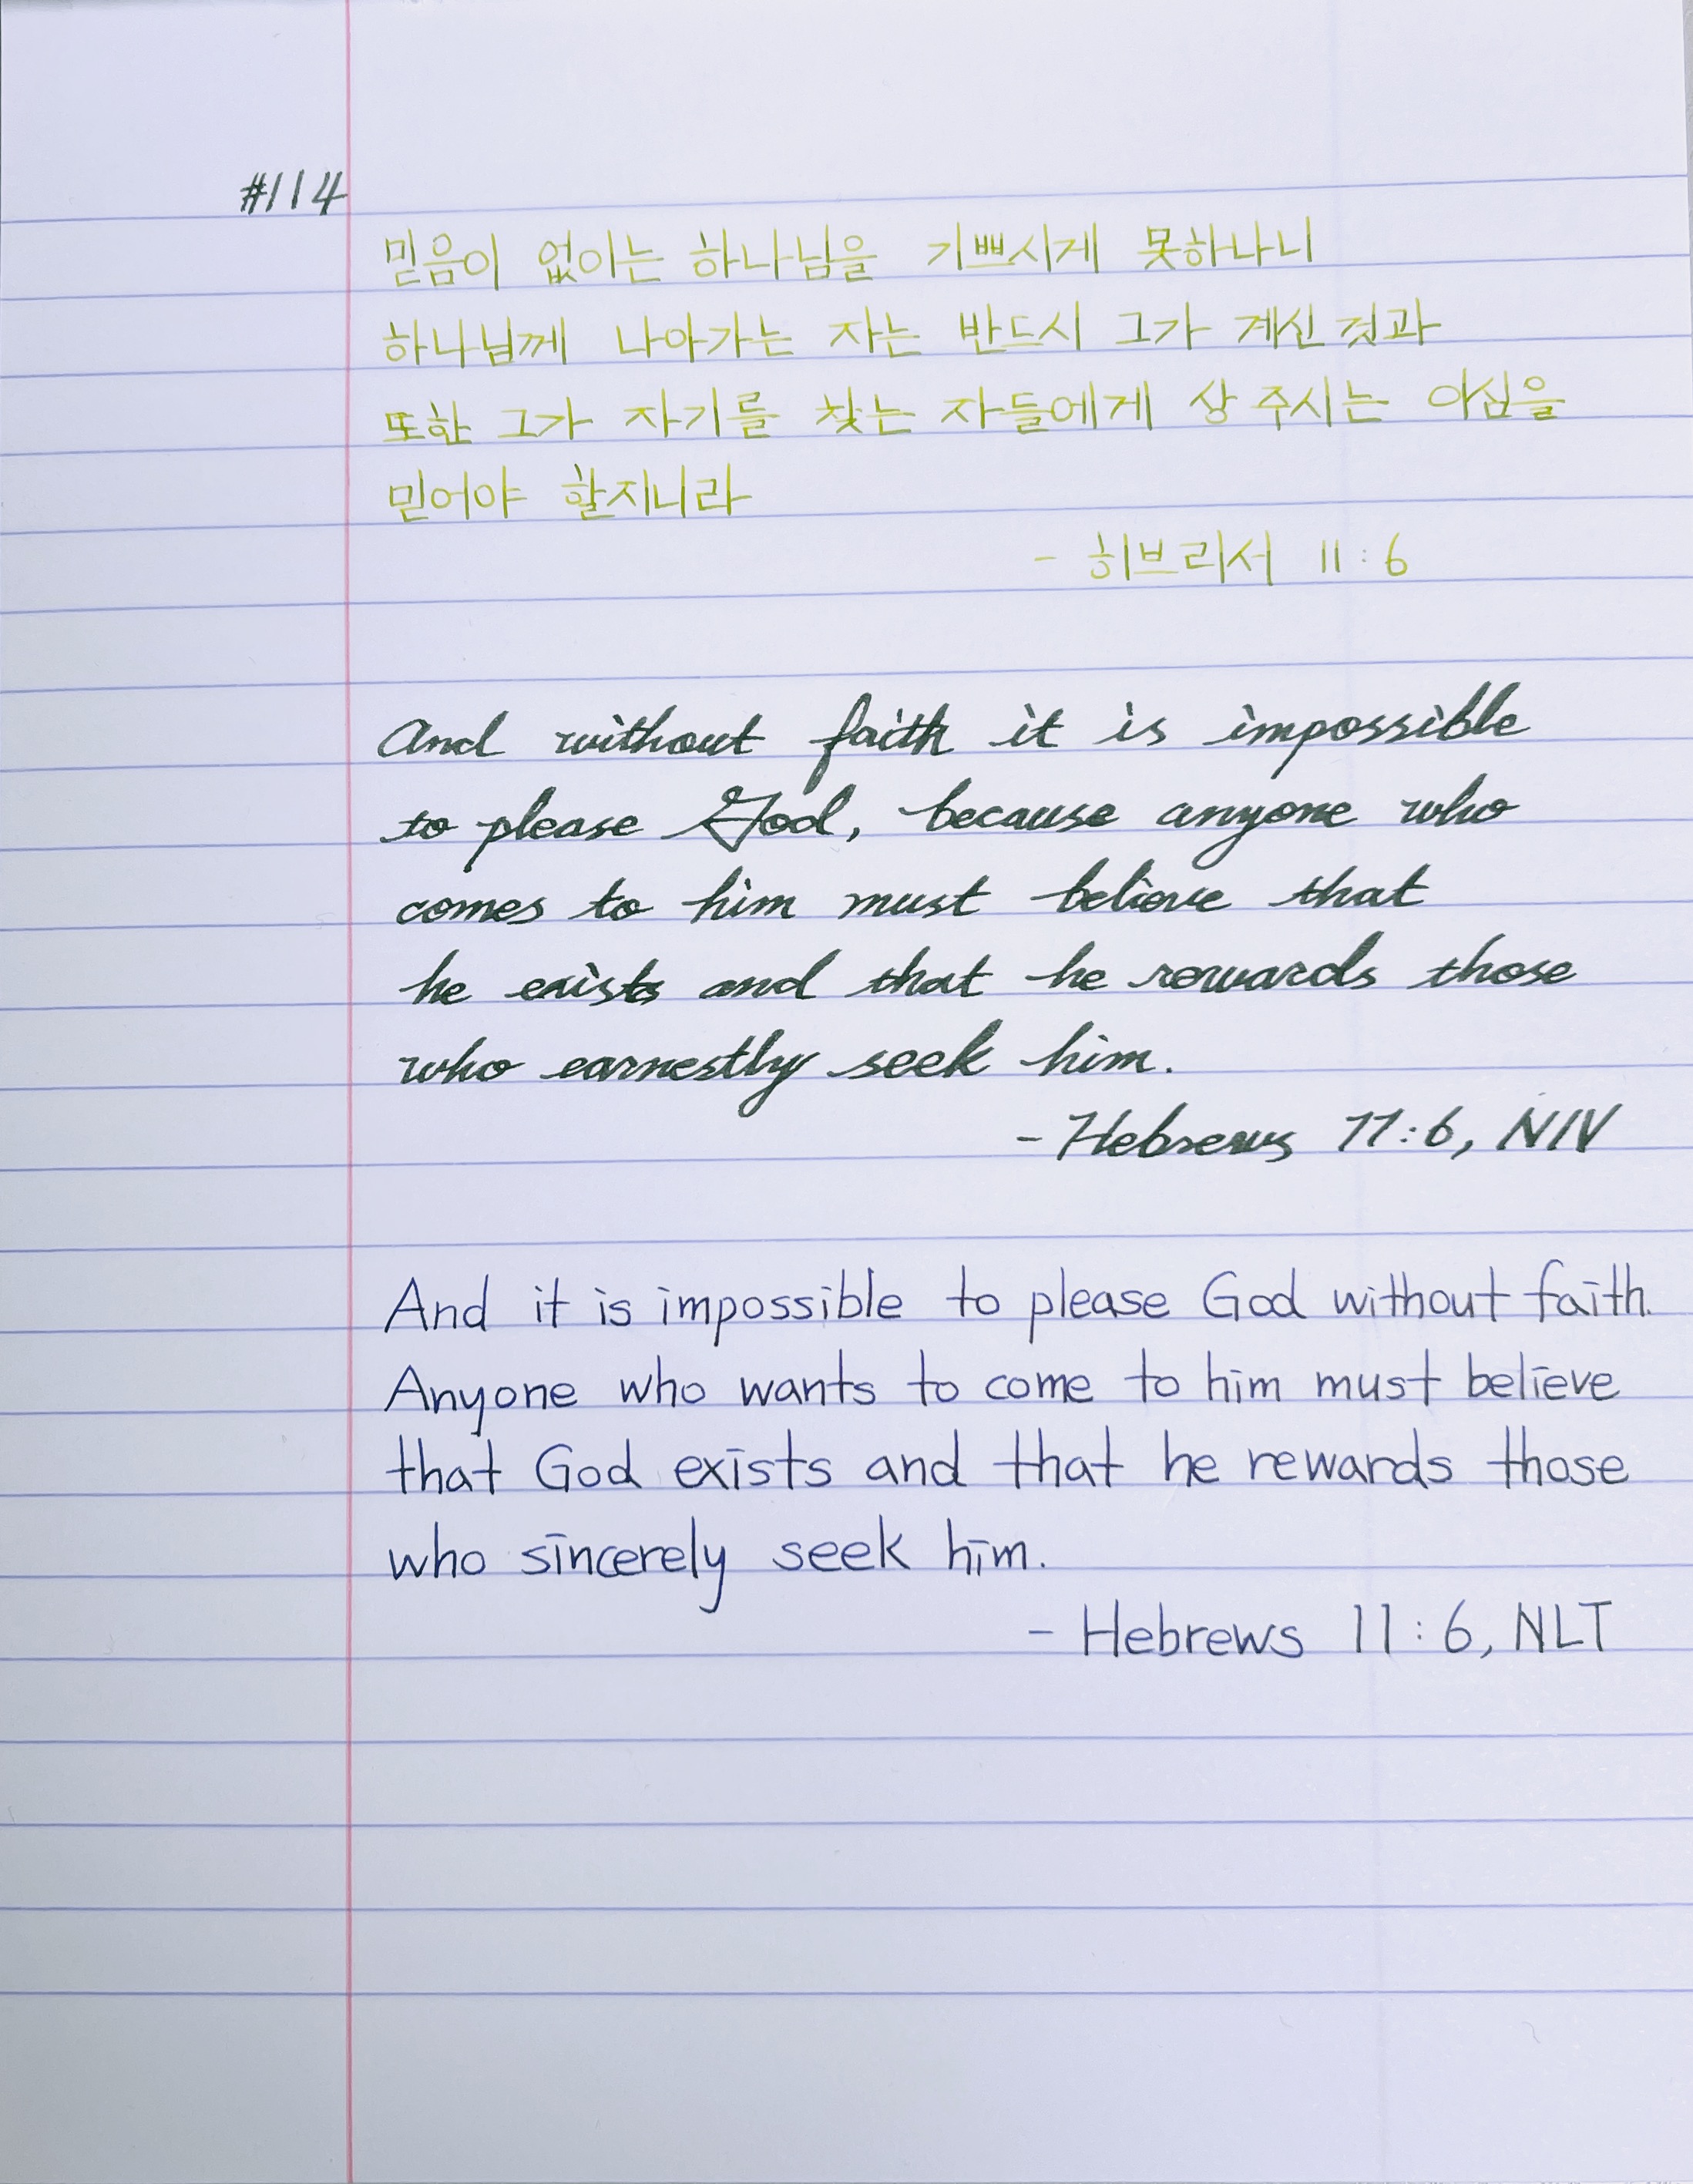 #114
믿음이 없이는 하나님을 기쁘시게 못하나니
하나님께 나아가는 자는 반드시 그가 계신 것과
또한 그가 자기를 찾는 자들에게 상 주시는 이심을
믿어야 할지니라
- 히브리서 11:6
And without faith it is impossible
to please God, because anyone who
comes to him must believe that
he exists and that he rewards those
who earnestly seek him.
- Hebrews 11:6, NIV
And it is impossible to please God without faith.
Anyone who wants to come to him must believe
that God exists and that he rewards those
who sincerely seek him.
- Hebrews 11:6, NLT